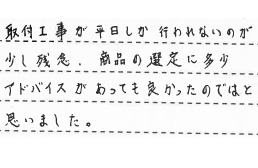 取付工事が平日しか行われないのが
少し残念。商品の選定に多少
アドバイスがあっても良かったのではと
思いました。